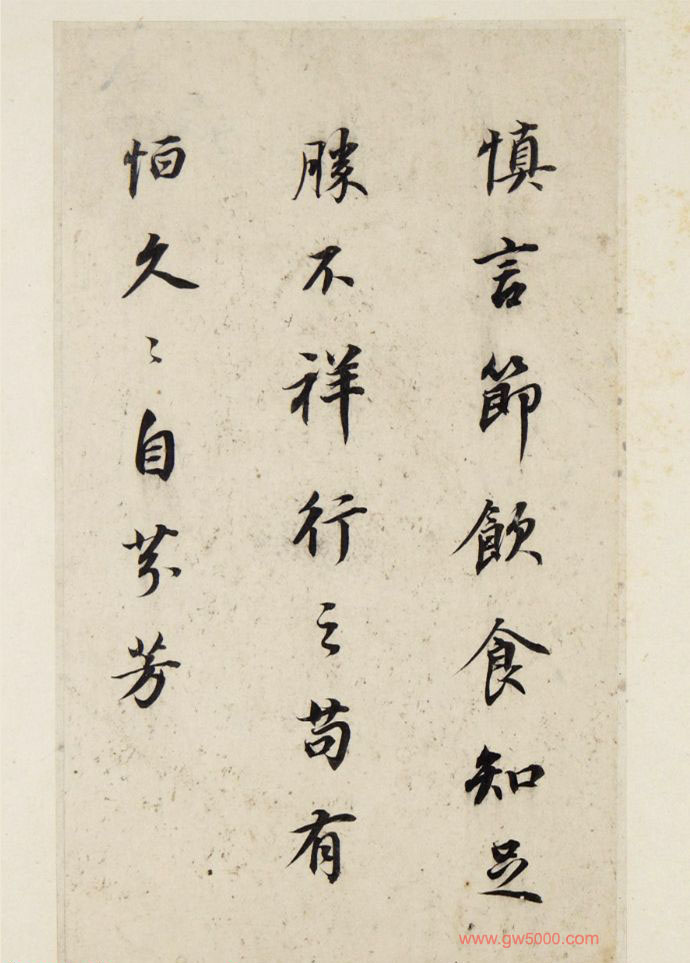 慎言節飲食知足
勝不祥行之苟有
恒久々自芬芳
www.gw5000.com